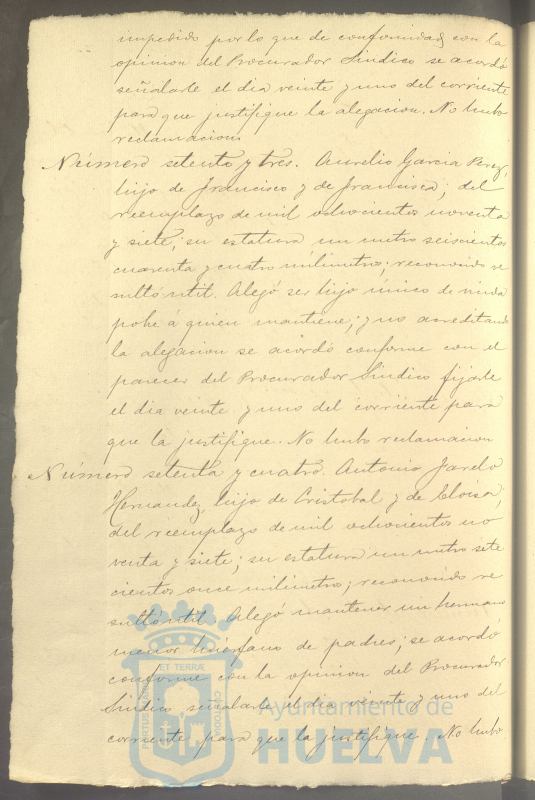 impedido por lo que de conformidad con la
opinion del Procurador Sindico se acordó
señalarle el dia veinte y uno del corriente
para que justifique la alegacion. No hubo
reclamacion.
Número setenta y tres. Aurelio Garcia Perez,
hijo de Francisco y de Francisca; del
reemplazo de mil ochocientos noventa
y siete; su estatura un metro seiscientos
cuarenta y cuatro milimetros; reconocido re
sultó útil. Alegó ser hijo único de viuda
pobre á quien mantiene; y no acreditando
la alegacion se acordó conforme con el
parecer del Procurador Sindico fijarle
el dia veinte y uno del corriente para
que la justifique. No hubo reclamacion
Número setenta y cuatro. Antonio
Hernandez, hijo de Cristobal y de Eloisa,
del reemplazo de mil ochocientos no
venta y siete; su estatura un metro sete
cientos once milimetros; reconocido re
sultó útil. Alegó mantener un hermano
menor huérfano de padres; se acordó
conforme con la opinion del Procurador
Sindico señalarle el dia veinte y uno del
corriente para que la justifique. No hubo
PORTUS MARIS ET TERRÆ CUSTODIA
Ayuntamiento de
HUELVA